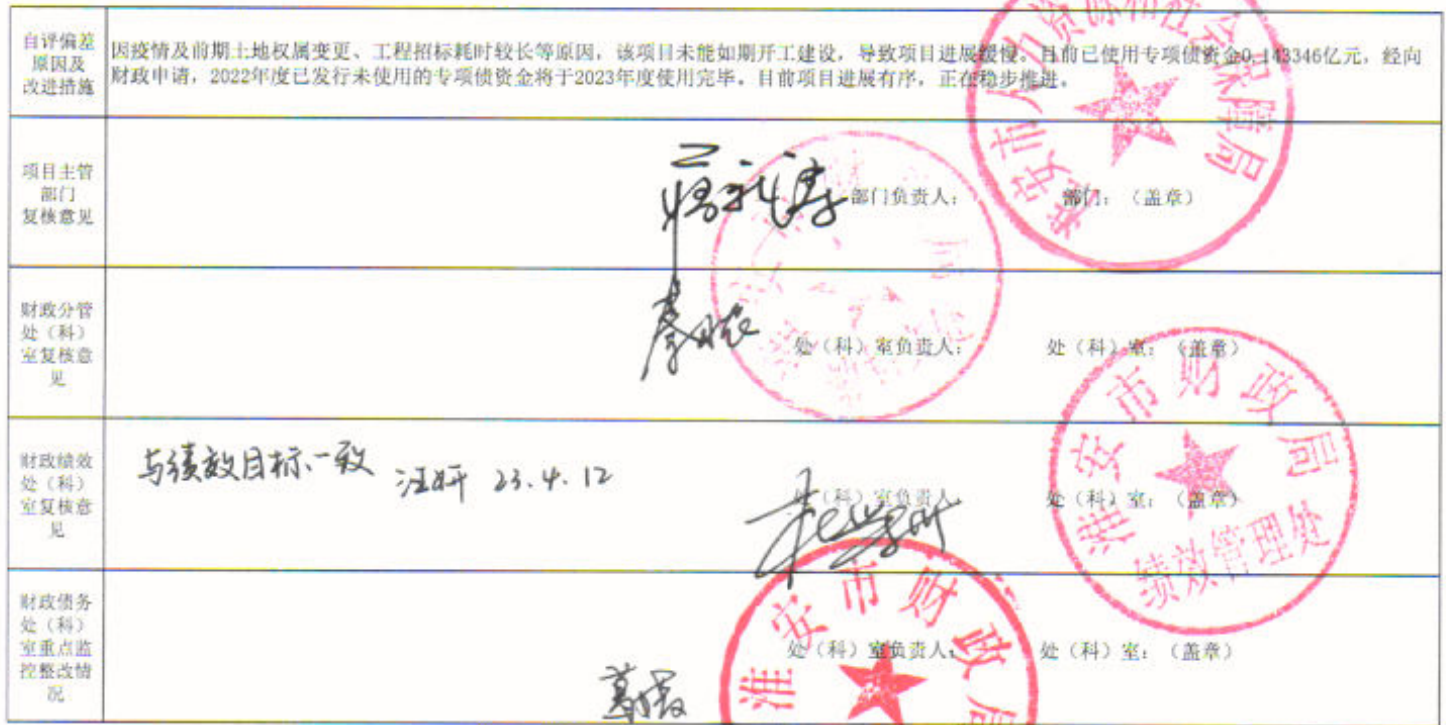 自评偏差
原因及
改进措施
因疫情及前期土地权属变更、工程招标耗时较长等原因，该项目未能如期开工建设，导致项目进展缓慢。目前已使用专项债资金0.143346亿元，经向
财政申请，2022年度已发行未使用的专项债资金将于2023年度使用完毕。目前项目进展有序，正在稳步推进。
淮安市人力资源和社会保障局
项目主管
部门
复核意见
部门负责人：
部门：（盖章）
财政分管
处（科）
室复核意
见
处（科）室负责人：
处（科）室：（盖章）
财政绩效
处（科）
室复核意
见
与绩效目标一致 汪妍 23.4.12
处（科）室负责人
处（科）室：（盖章）
淮安市财政局
绩效管理处
财政债务
处（科）
室重点监
控整改情
况
处（科）室负责人：
处（科）室：（盖章）
淮安市财政局